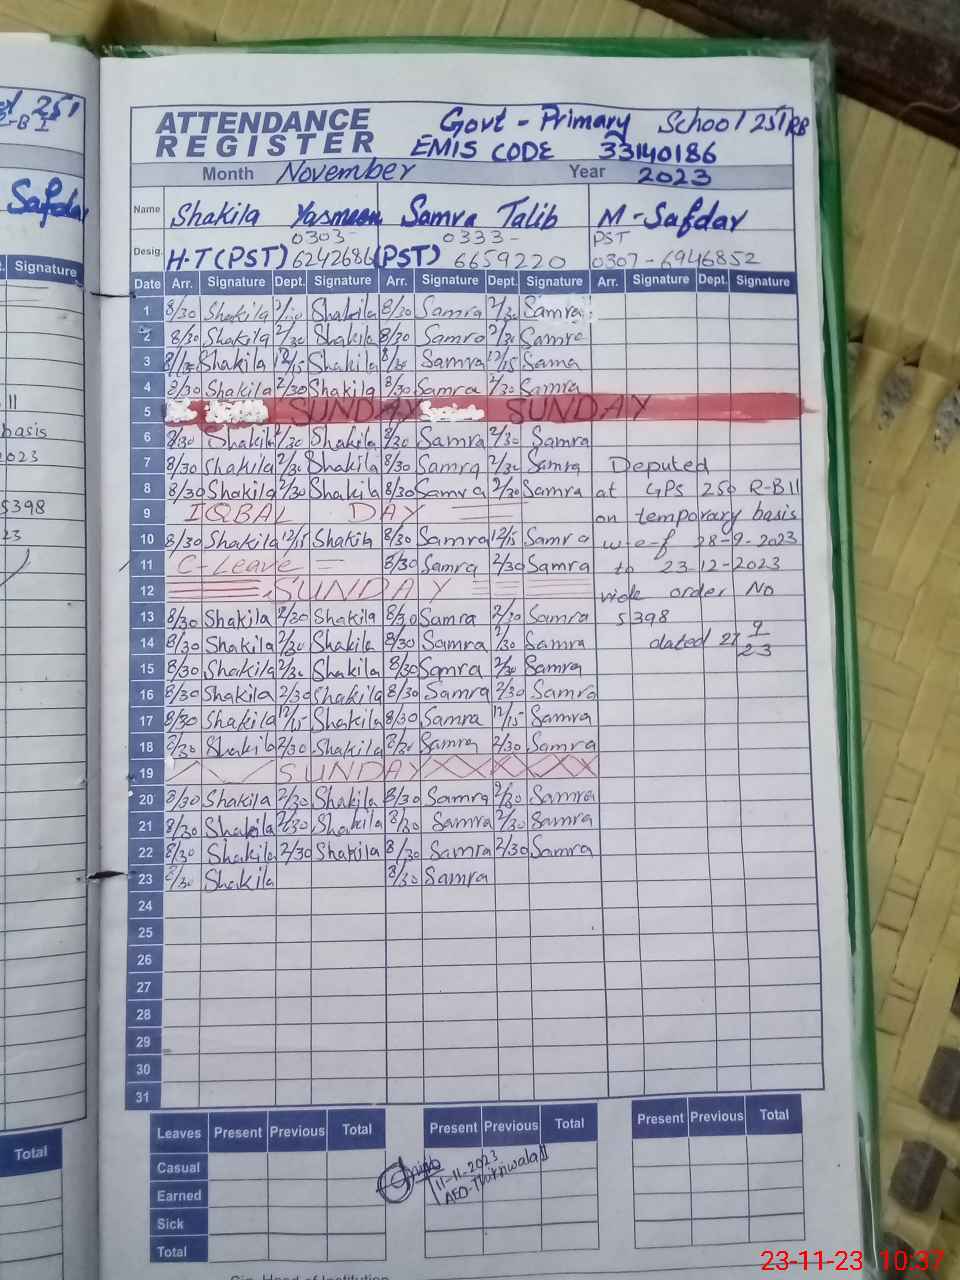 251
Safdar
Signature
basis
2023
5398
23
Total
ATTENDANCE
REGISTER
Govt - Primary School 251 RB
EMIS CODE 33140186
Month November Year 2023
Name Shakila Yasmeen Samra Talib M - Safdar
Desig. H.T (PST) 0303-6242686 (PST) 0333-6659220 PST 0307-6946852
Date Arr. Signature Dept. Signature Arr. Signature Dept. Signature Arr. Signature Dept. Signature
1 8/30 Shakila 2/30 Shakila 8/30 Samra 2/30 Samra
2 8/30 Shakila 2/30 Shakila 8/30 Samra 2/30 Samra
3 8/30 Shakila 12/15 Shakila 8/30 Samra 12/15 Sama
4 8/30 Shakila 2/30 Shakila 8/30 Samra 2/30 Samra
5 SUNDAY SUNDAY
6 8/30 Shakila 2/30 Shakila 8/30 Samra 2/30 Samra
7 8/30 Shakila 2/30 Shakila 8/30 Samra 2/30 Samra Deputed
8 8/30 Shakila 2/30 Shakila 8/30 Samra 2/30 Samra at GPS 250 R-B II
9 IQBAL DAY on temporary basis
10 8/30 Shakila 12/15 Shakila 8/30 Samra 12/15 Samra w-e-f 28-9-2023
11 C-Leave 8/30 Samra 2/30 Samra to 23-12-2023
12 SUNDAY vide order No
13 8/30 Shakila 2/30 Shakila 8/30 Samra 2/30 Samra 5398
14 8/30 Shakila 2/30 Shakila 8/30 Samra 2/30 Samra dated 27 9/23
15 8/30 Shakila 2/30 Shakila 8/30 Samra 2/30 Samra
16 8/30 Shakila 2/30 Shakila 8/30 Samra 2/30 Samra
17 8/30 Shakila 12/15 Shakila 8/30 Samra 12/15 Samra
18 8/30 Shakila 2/30 Shakila 8/30 Samra 2/30 Samra
19 SUNDAY
20 8/30 Shakila 2/30 Shakila 8/30 Samra 2/30 Samra
21 8/30 Shakila 2/30 Shakila 8/30 Samra 2/30 Samra
22 8/30 Shakila 2/30 Shakila 8/30 Samra 2/30 Samra
23 8/30 Shakila 8/30 Samra
24
25
26
27
28
29
30
31
Leaves Present Previous Total Present Previous Total Present Previous Total
Casual
Earned
Sick
Total
11-11-2023
AEO-
23-11-23 10:37